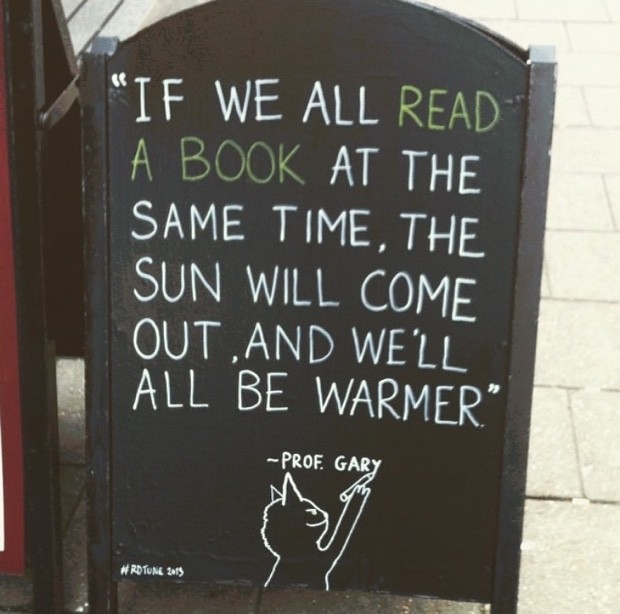 "IF WE ALL READ
A BOOK AT THE
SAME TIME, THE
SUN WILL COME
OUT, AND WE'LL
ALL BE WARMER."
~PROF. GARY
#RDTUNE 2013